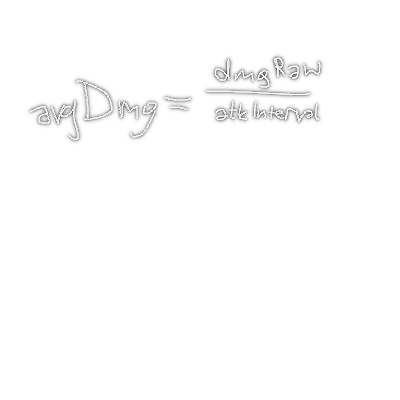 avgDmg = dmgRaw
atkInterval